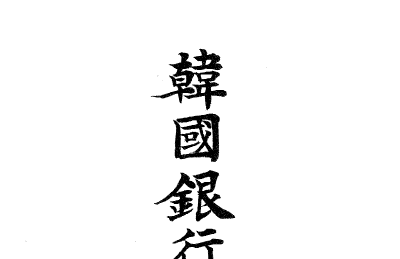 韓國銀行